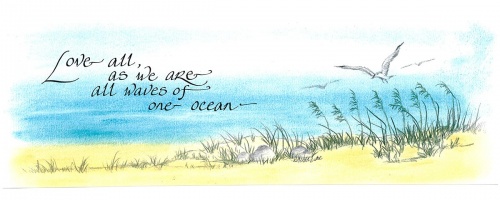 Love all,
as we are
all waves of
one ocean